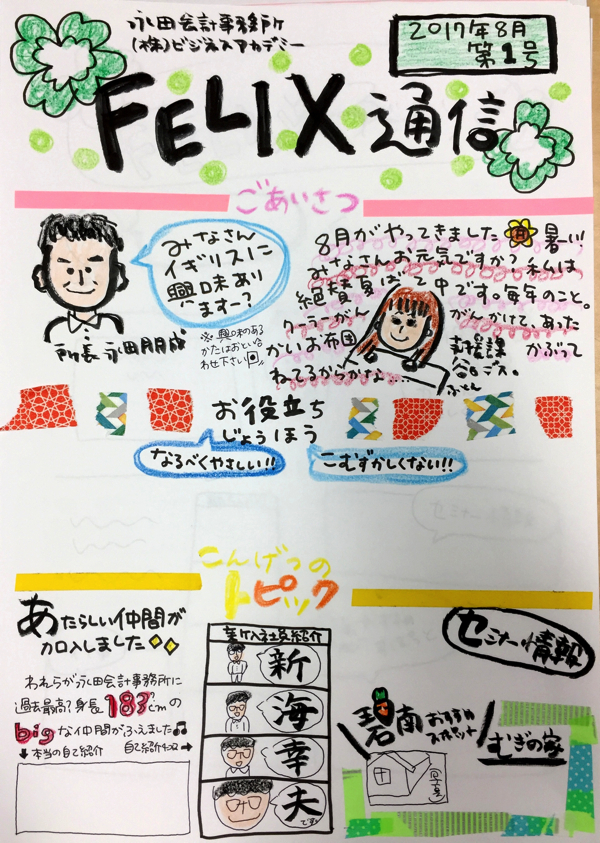 永田会計事務所
(株)ビジネスアカデミー
2017年8月
第1号
FELIX通信
ごあいさつ
みなさん
イギリスに
興味あり
ますー?
所長 永田朋成
※興味のある
かたはおといあ
わせ下さい
8月がやってきました 暑い!
みなさんお元気ですか?私は
絶賛夏ばて中です。毎年のこと。
クーラーがん がんかけてあった
かいお布団 かぶって
ねてるからかな…
支援課
谷口デス。
ふとん
お役立ち
じょうほう
なるべくやさしい!!
こむずかしくない!!
こんげつの
トピック
あたらしい仲間が
加入しました
われらが永田会計事務所に
過去最高?身長183cmの
bigな仲間がふえました♫
↓本当の自己紹介 自己紹介4コマ→
新入社員紹介
新
海
幸
夫
です
セミナー情報
碧南おすすめ
スポット
むぎの家
写真